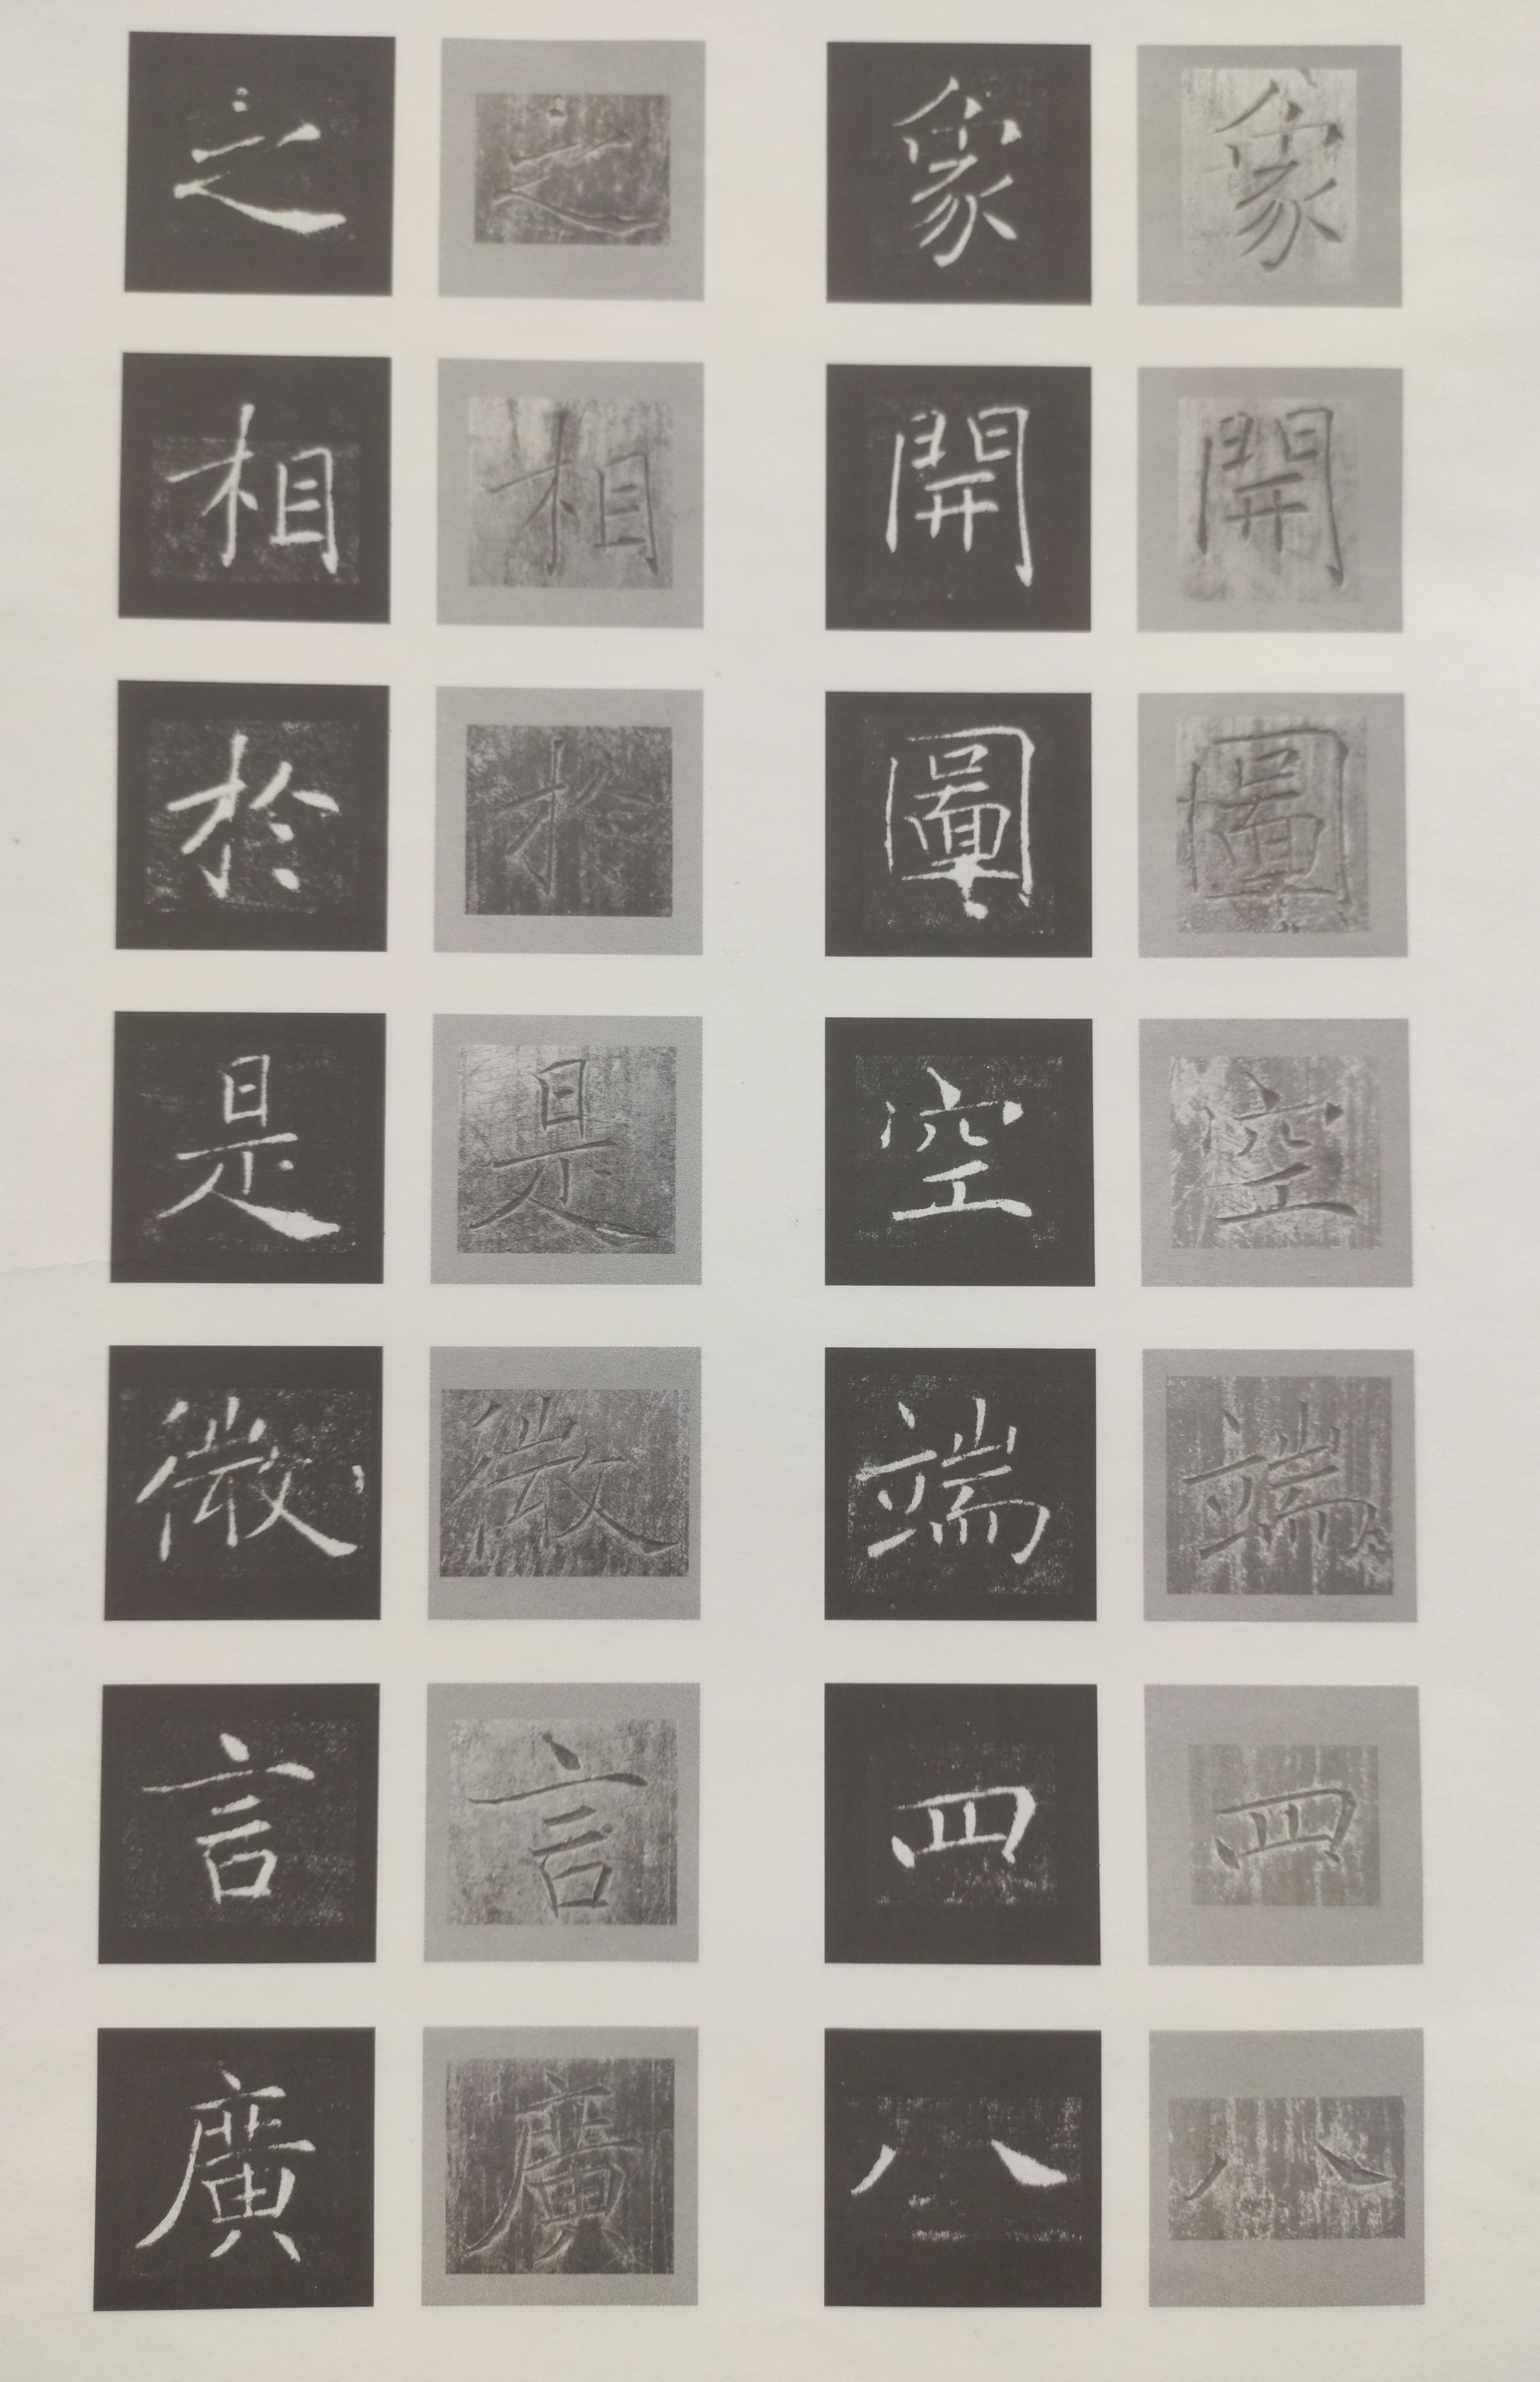 象開圖空端四八
象開圖空端四八
之相於是微言廣
之相於是微言廣